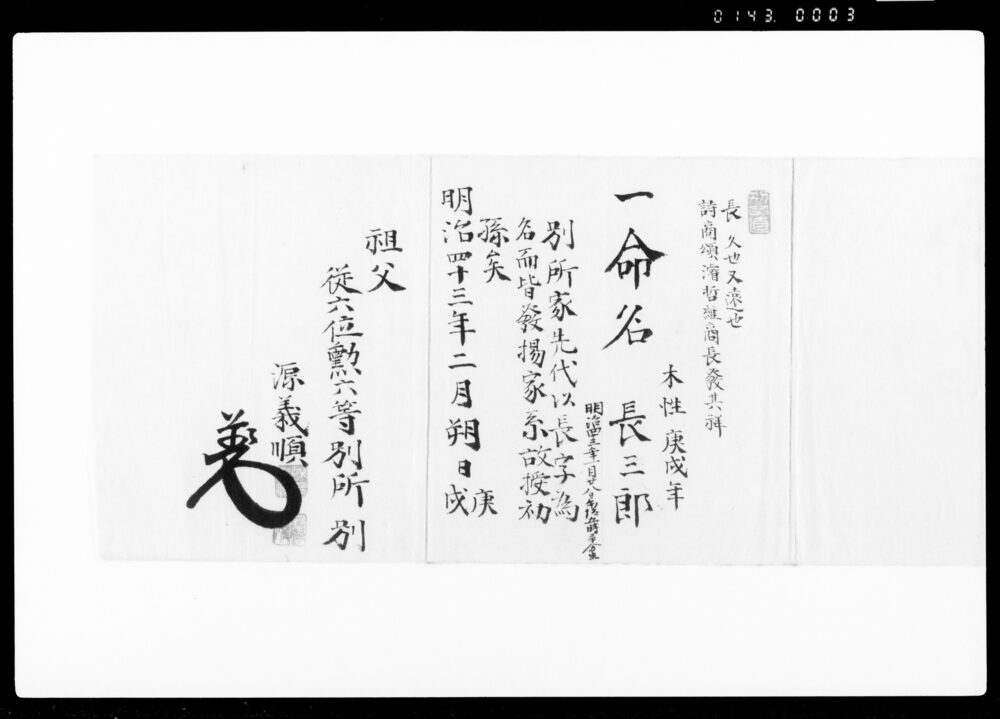 0143. 0003
長 久也又遠也
詩商頌濬哲維商長發其祥
木性 庚戌年
一命名 長三郎
明治四十三年一月廿八日午後
別所家先代以長字為
名而皆發揚家系故授初
孫矣
明治四十三年二月朔日庚戌
祖父
從六位勲六等別所 別
源義順